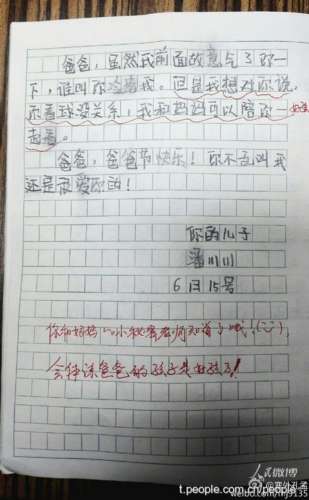 爸爸，虽然我前面故意气了你一
下，谁叫你冷落我。但是我想对你说，
你看球没关系，我和妈妈可以陪你一
起看。
爸爸，爸爸节快乐！你不在叫我
还是很爱你的！
你的儿子
潘川川
6月15号
你和妈妈的小秘密老师知道了哦！
会体谅爸爸的孩子是好孩子！
人民微博
t.people.com.cn/people
weibo.com/mj3135